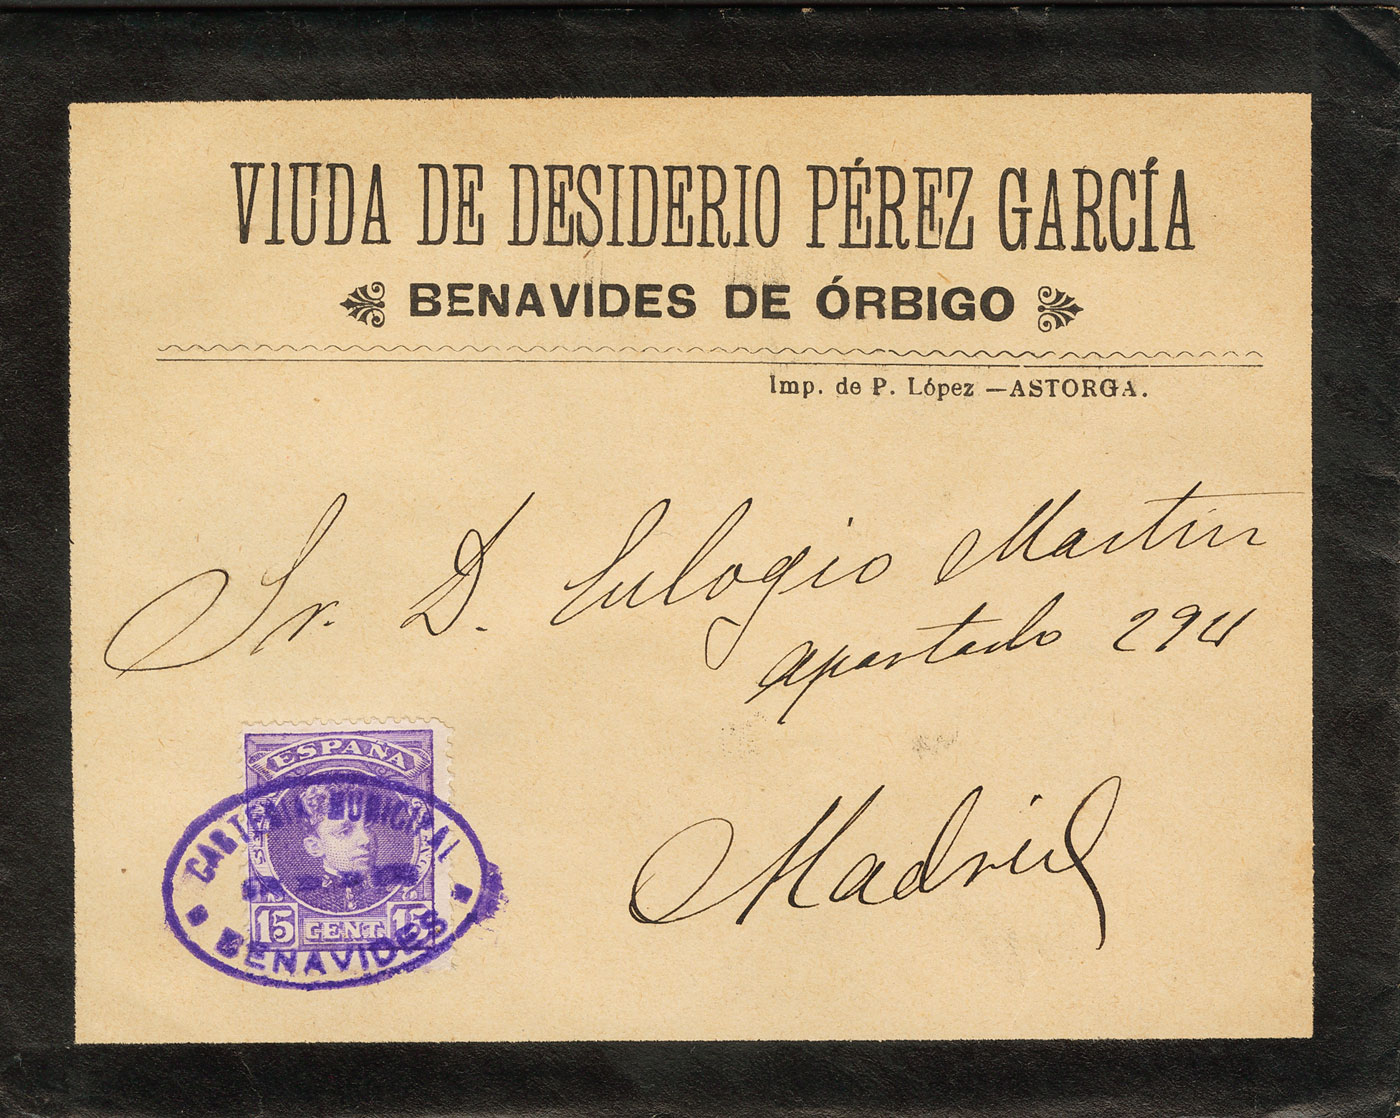 VIUDA DE DESIDERIO PÉREZ GARCÍA
BENAVIDES DE ÓRBIGO
Imp. de P. López —ASTORGA.
Sr. D. Eulogio Martin
apartado 294
Madrid
ESPAÑA
CARTERIA MUNICIPAL
15 CENT. 15
BENAVIDES